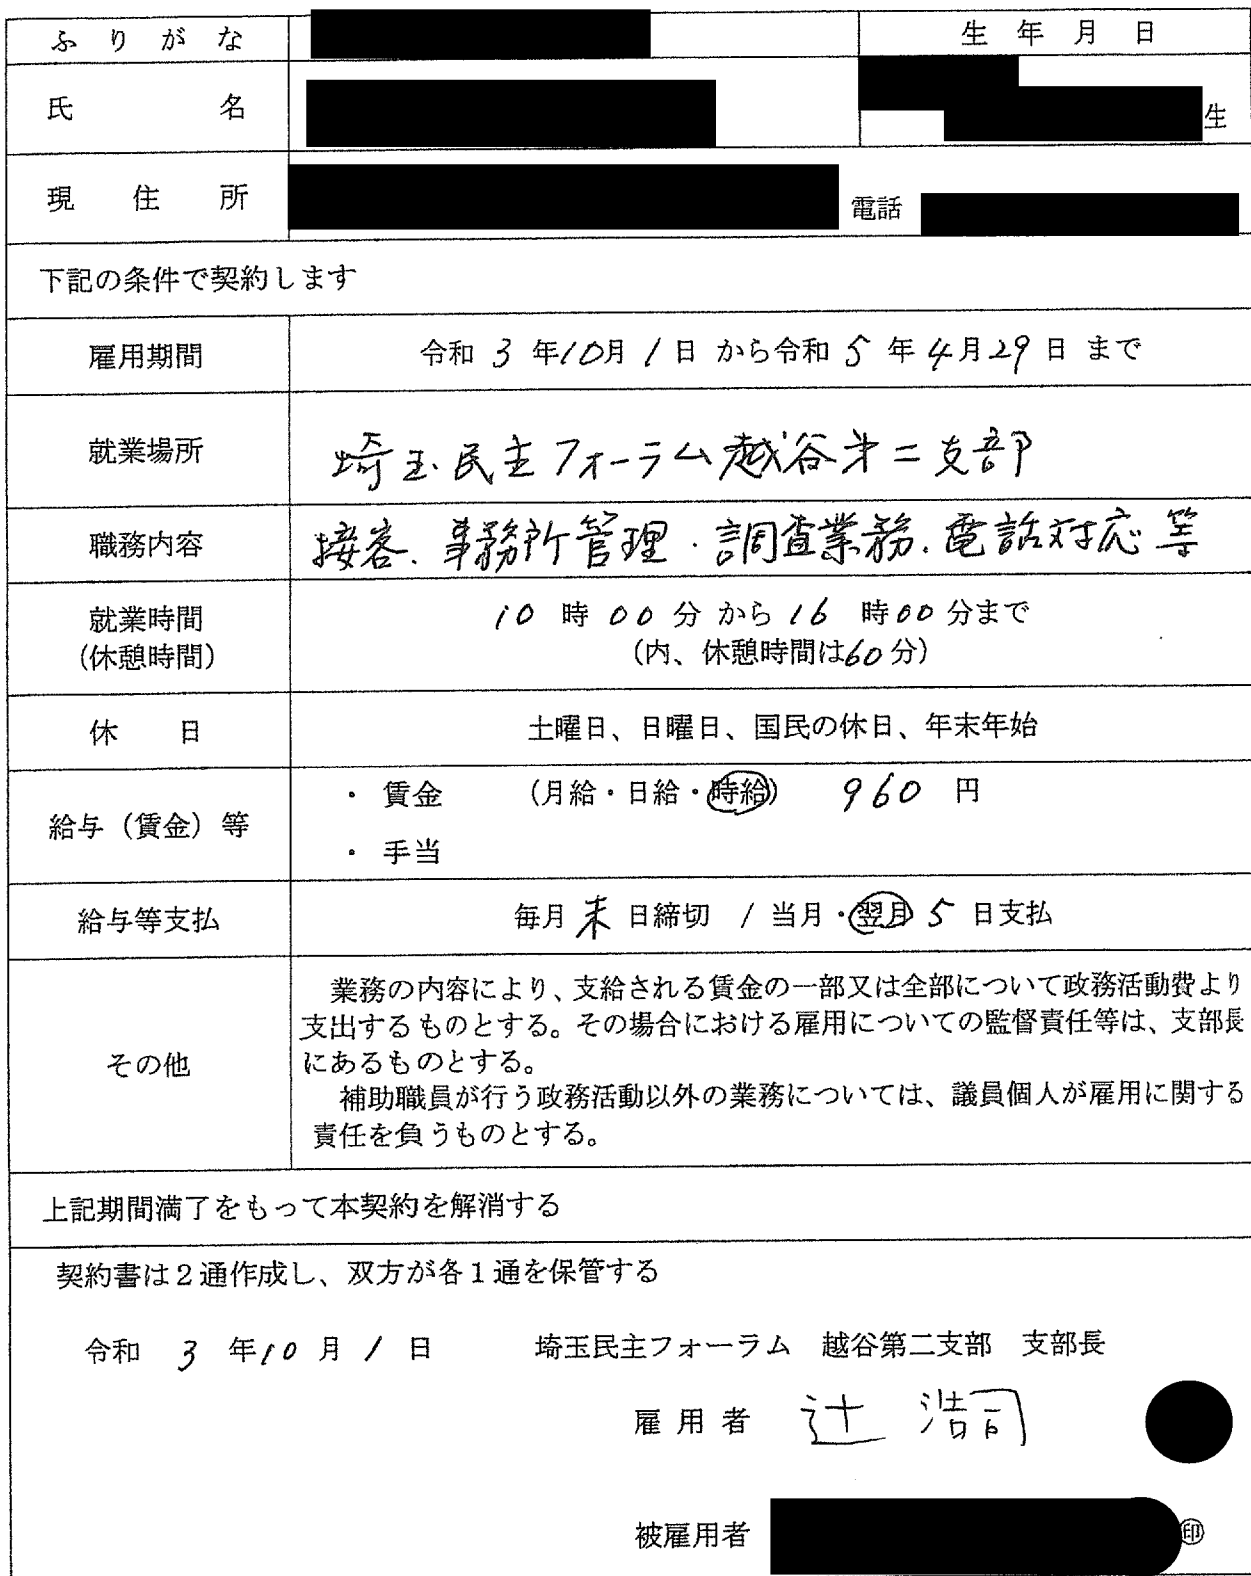 ふりがな
生年月日
氏名
生
現住所
電話
下記の条件で契約します
雇用期間
令和 3 年10月 1 日 から令和 5 年 4月29 日 まで
就業場所
埼玉民主フォーラム越谷第二支部
職務内容
接客、事務所管理・調査業務、電話対応 等
就業時間
(休憩時間)
10 時 00 分 から 16 時00 分まで
(内、休憩時間は60 分)
休日
土曜日、日曜日、国民の休日、年末年始
給与(賃金)等
・ 賃金 (月給・日給・時給) 960 円
・ 手当
給与等支払
毎月 末 日締切 / 当月・翌月 5 日支払
その他
業務の内容により、支給される賃金の一部又は全部について政務活動費より
支出するものとする。その場合における雇用についての監督責任等は、支部長
にあるものとする。
補助職員が行う政務活動以外の業務については、議員個人が雇用に関する
責任を負うものとする。
上記期間満了をもって本契約を解消する
契約書は2通作成し、双方が各1通を保管する
令和 3 年10 月 1 日 埼玉民主フォーラム 越谷第二支部 支部長
雇用者 辻 浩司
被雇用者 ㊞